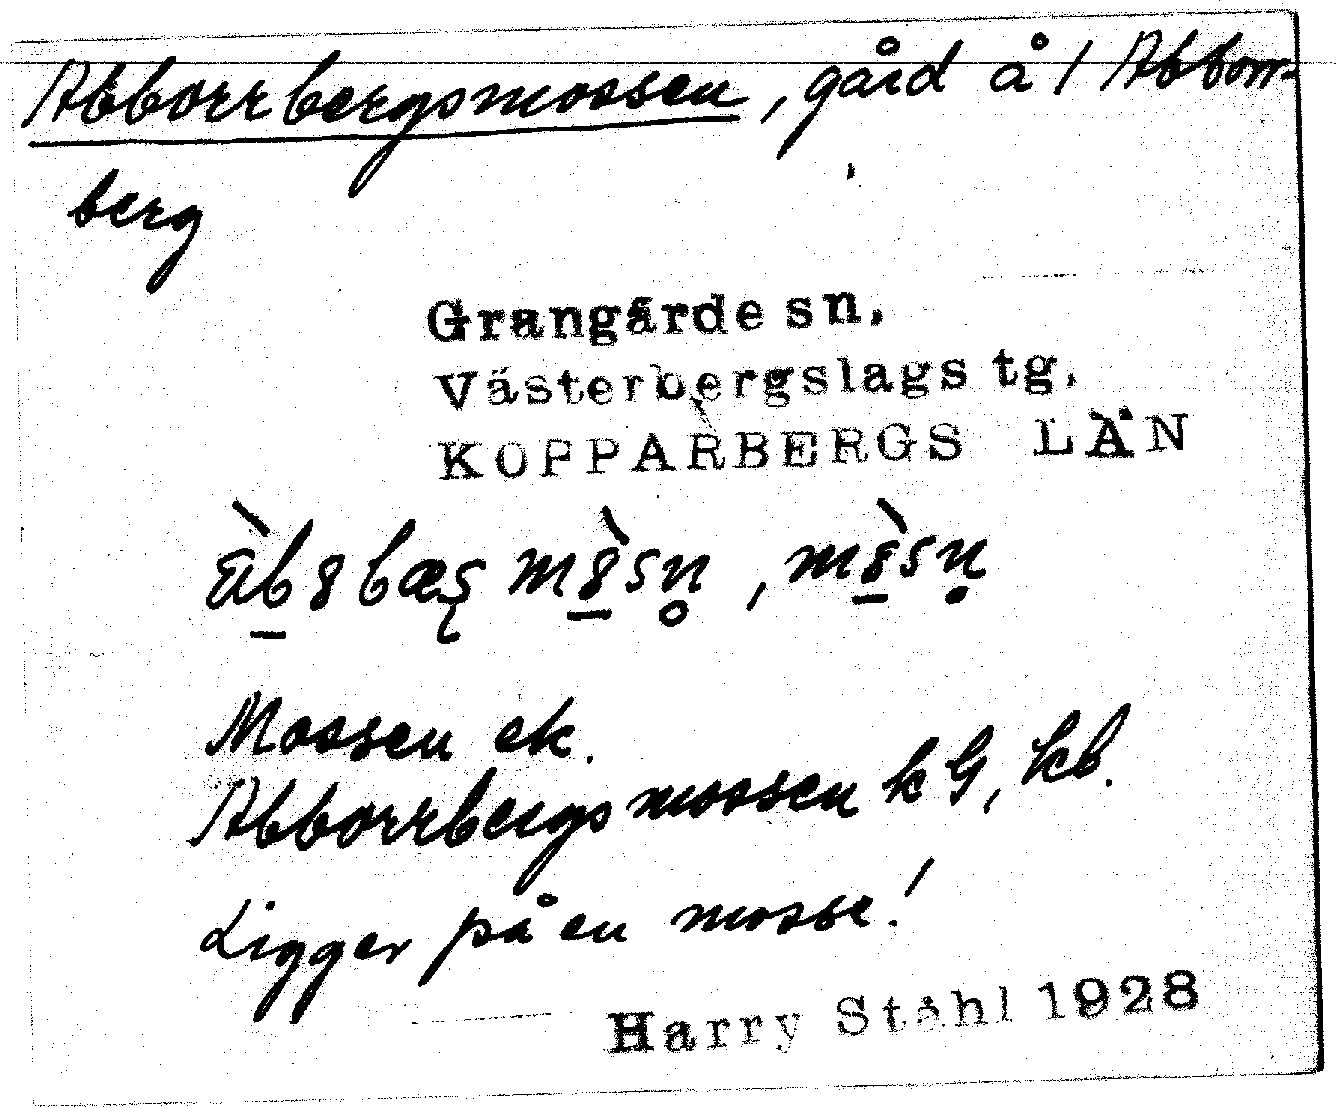 Abborrbergsmossen, gård å 1 Abborr-
berg
Grangärde sn.
Västerbergslags tg.
KOPPARBERGS LÄN
Mossen ek.
Abborrbergsmossen k G, kb.
Ligger på en mosse!
Harry Ståhl 1928